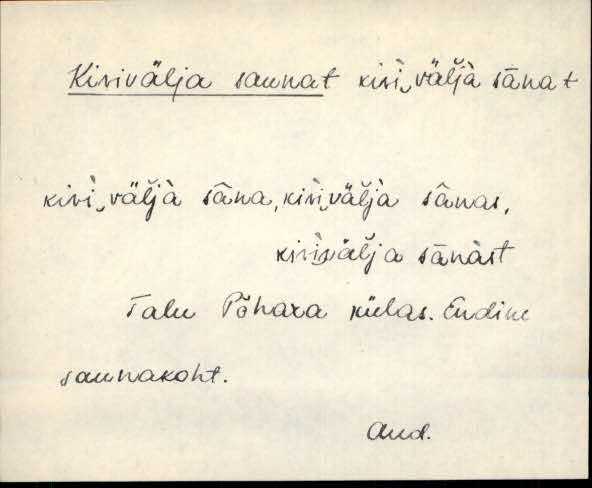 Kivivälja saunat kivi‿väľjà sānat
kivì‿väľjà sāna, kivì‿väľja sānas,
kivì‿väľja sānàst
Talu Põhara külas. Endine
saunakoht.
Aud.